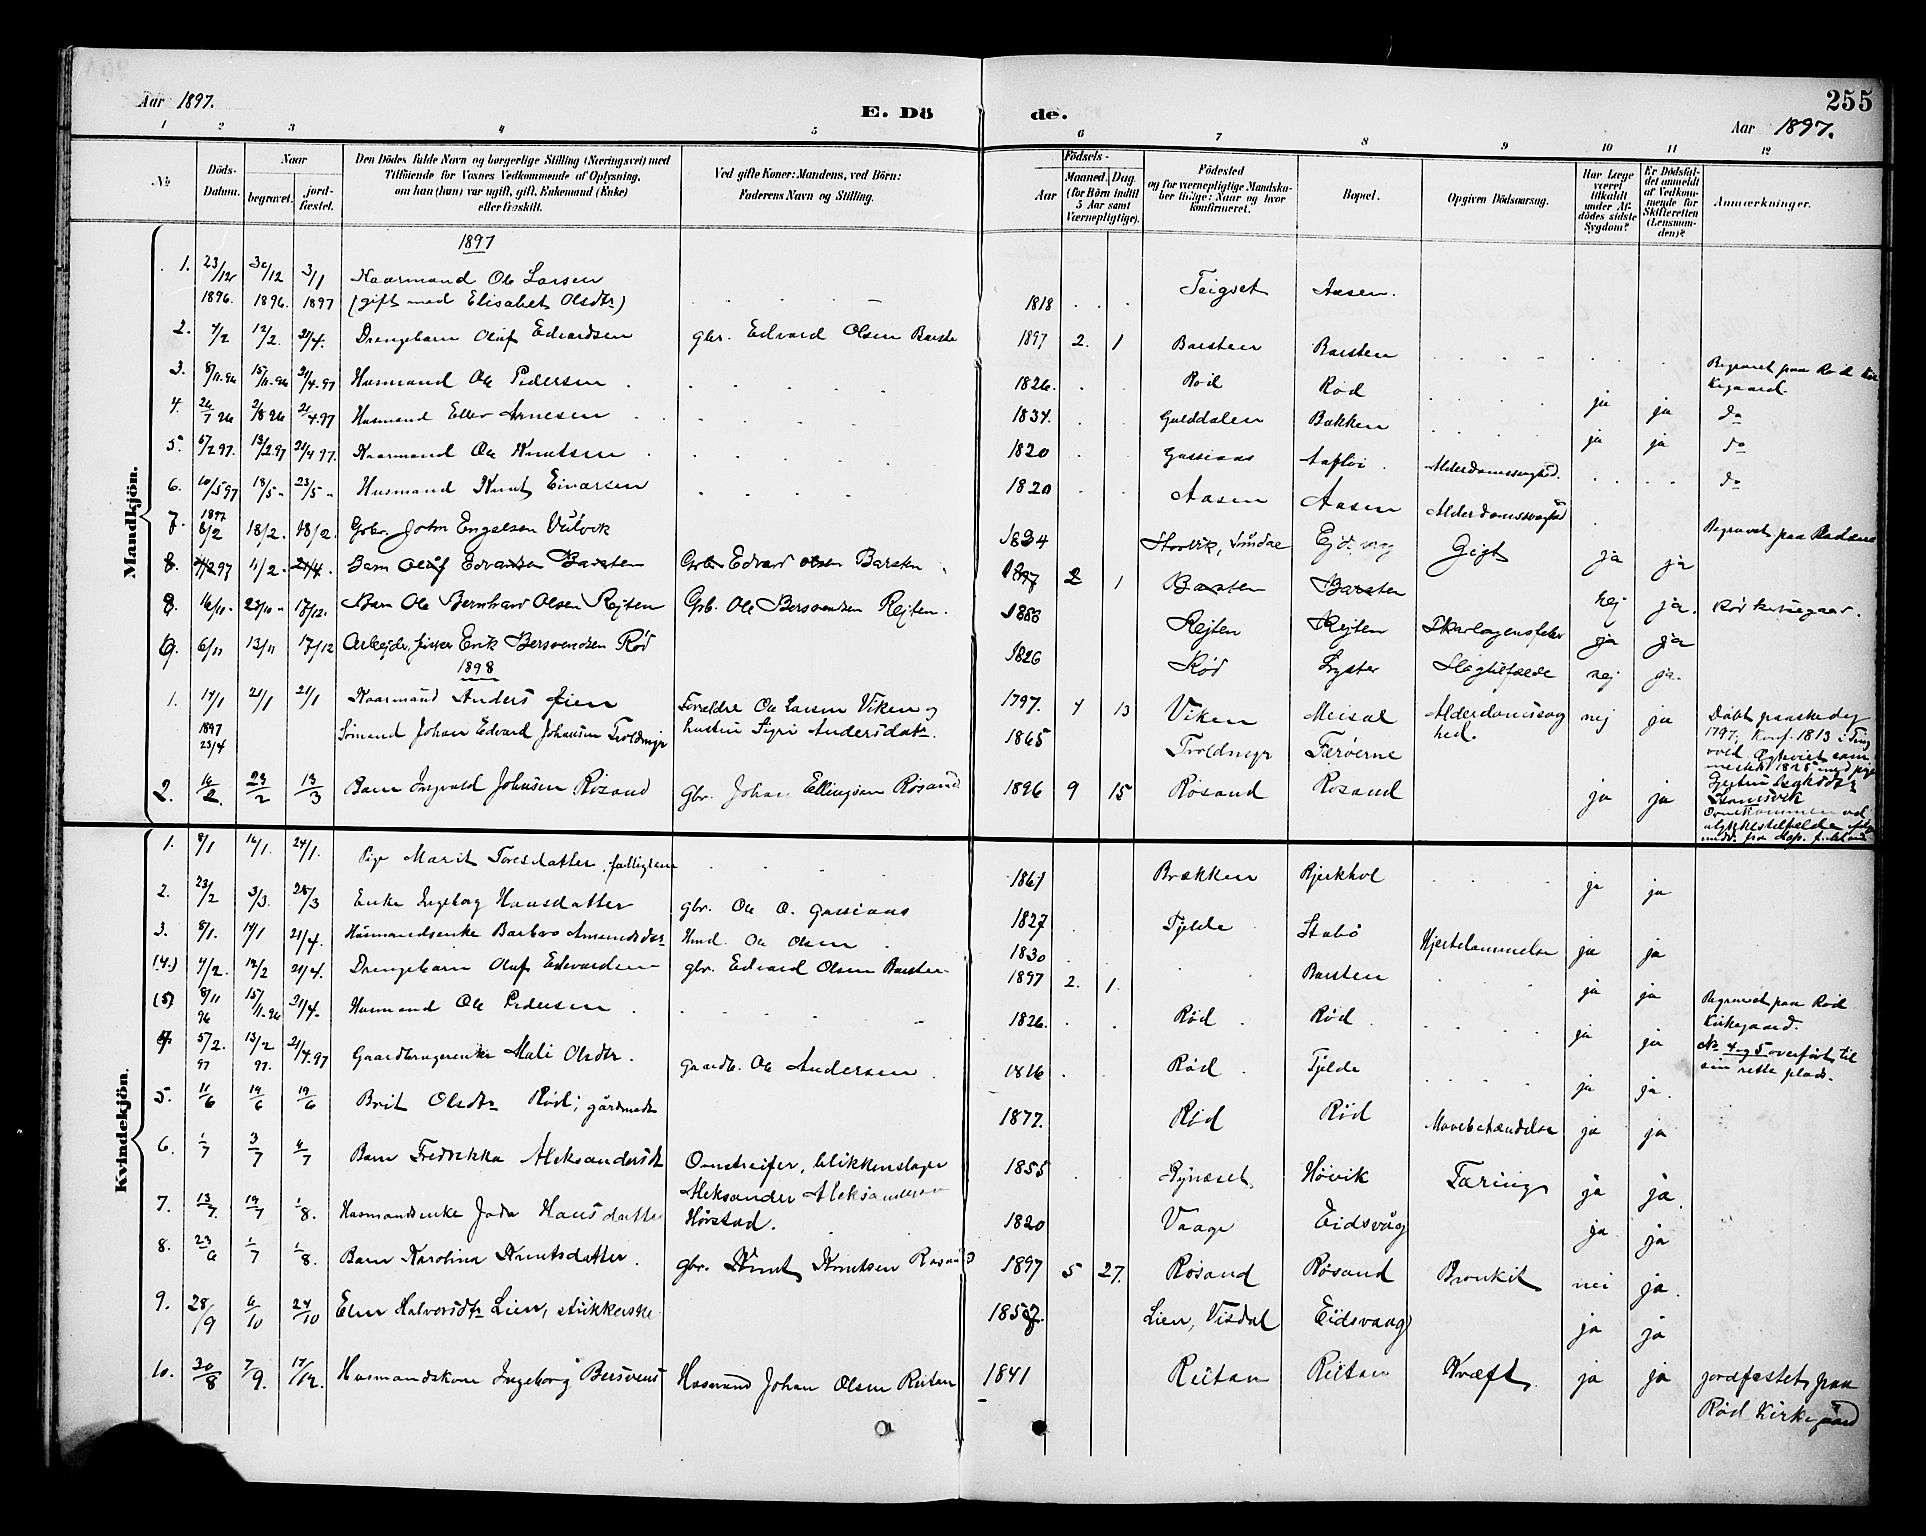 Aar 1897.
E. Dö
de.
255
Aar 1897.
1 2 3 4 5 6 7 8 9 10 11 12
No
Döds-Datum.
Naar
begravet.
jord-fæstet.
Den Dödes fulde Navn og borgerlige Stilling (Næringsvei) med
Tilföiende for Voxnes Vedkommende af Oplysning,
om han (hun) var ugift, gift, Enkemand (Enke)
eller fraskilt.
Ved gifte Koner: Mandens, ved Börn:
Faderens Navn og Stilling.
Födsels-
Aar
Maaned.
Dag
(for Börn indtil
5 Aar samt
Værnepligtige).
Födested
og for værnepligtige Mandska-
ber tillige: Naar og hvor
konfirmeret.
Bopæl.
Opgiven Dödsaarsag.
Har Læge
været
tilkaldt
under Af-
dödes sidste
Sygdom?
Er Dödsfal-
det anmeldt
af Vedkom-
mende for
Skifteretten
(Lensman-
den)?
Anmærkninger.
Mandkjön.
1897
1. 23/12 30/12 3/1 Kaarmand Ole Larsen
1896. 1896. 1897 (gift med Elisabet Olsdtr) 1818 Teigset Aasen.
2. 4/2 12/2. 21/4. Drengebarn Oluf Edvardsen gbr. Edvard Olsen Barste 1897 2. 1 Barsten Barsten
3. 8/11.96 15/11.96 21/4.97 Husmand Ole Pedersen 1826. Rød Rød ja ja Begravet paa Rød Kirkegaard.
4. 26/7 96 2/8 96 21/4.97 Husmand Ellev Arnesen 1834. Gulddalen Bakken ja ja do
5. 5/2 97. 13/2 97 21/4 97. Kaarmand Ole Knutsen 1820 Gussiaas Alderdomssvaghed. do
6. 10/5 97 18/5 23/5 Husmand Knut Einarsen 1820 Aasen Aasen Alderdomssvaghed do
7. 1897 6/2 18/2. 18/2. Gbr. John Engelsen Utvik 1834 Gigt ja ja Begravet paa
8. 4/2 97 11/2 21/4. Barn Oluf Edvardsen Barsten Gbr Edvard Olsen Barsten 1897 2 1 Barsten Barsten nej ja. Rød kirkegaar.
8. 16/10 23/10 17/12. Barn Ole Bernhard Olsen Rejten Grb. Ole Bersvendsen Rejten. Rejten Rejten Skarlagensfeber ja ja
9. 6/11 13/11 17/12 Arbejder, fisker Erik Bersvendsen Rød 1826 Rød Lyster Slagtilfælde nej ja.
1898
1. 14/1 21/1 21/1 Kaarmand Anders Forældre Ole Larsen Viken og 1797. 4 13 Viken Meisal Alderdomssvag nej ja Døbt paaskedag
hustru Sigri Andersdatr. hed. 1797. Konf. 1813 i Ting
1897 23/4 Sømand Johan Edvard Johansen Troldmyr 1865 Troldmyr Færøerne
2. 16/2. 23/2 13/3 Barn Ingvald Johnsen Røsand Gbr. Johan Ellingsen Røsand 1896 9 15 Røsand Røsand ja ja
Omkommen ved
ulykkestilfælde
Kvindekjön.
1. 8/1 16/1. 24/1. Pige Marit Toresdatter, fattiglem 1861 Brækken Bjerkhol ja ja
2. 23/2 3/3. 28/3 Enke Ingeborg Hansdatter gbr. Ole O. Gussiaas 1827 Tjelde Stabø
3. 8/1. 14/1 21/4. Husmandsenke Barbro Amundsdtr Hmd. Ole Olsen 1830 Hjertelammelse ja ja
(4.) 4/2. 12/2 21/4. Drengebarn Oluf Edvardsen gbr. Edvard Olsen Barsten 1897 2. 1. Barsten ja ja
(5) 8/11 96 15/11.96 21/4. Husmand Ole Pedersen 1826. Rød Rød ja ja Begravet paa Rød
Kirkegaard.
4. 5/2. 97 13/2 97. 21/4.97 Gaardbrugerenke Mali Olsdtr. gaardb. Ole Andersen 1816 Rød Tjelde ja ja. No 4 og 5 overført til
sin rette plads.
5. 11/6 19/6 19/6 Brit Olsdtr Rød; 1877. Rød Rød Mavebetændelse ja ja
6. 1/7 3/7 4/7 Barn Fredrikka Aleksandersdt Omstreifer, blikkenslager 1855 Bynæset Høivik Tæring ja ja.
Aleksander Aleksandersen
7. 13/7. 19/7 1/8. Husmandsenke Hansdatter Hørstad. 1820 Vaage Eidsvåg ja ja
8. 23/6 1/7 1/8. Barn Karolina Knutsdatter. gbr. Knut Knutsen Røsand 1897 5 27. Røsand Røsand Bronkit nei ja.
9. 28/9 6/10 24/10 Elen Halvorsdtr Lien, 1857. Lien, Visdal Eidsvaag ja ja
10. 30/8 7/9. 17/12. Husmandskone Ingeborg Husmand Johan Olsen Reitan 1841 Reitan Reitan Kræft ja ja jordfæstet paa
Rød Kirkegaard